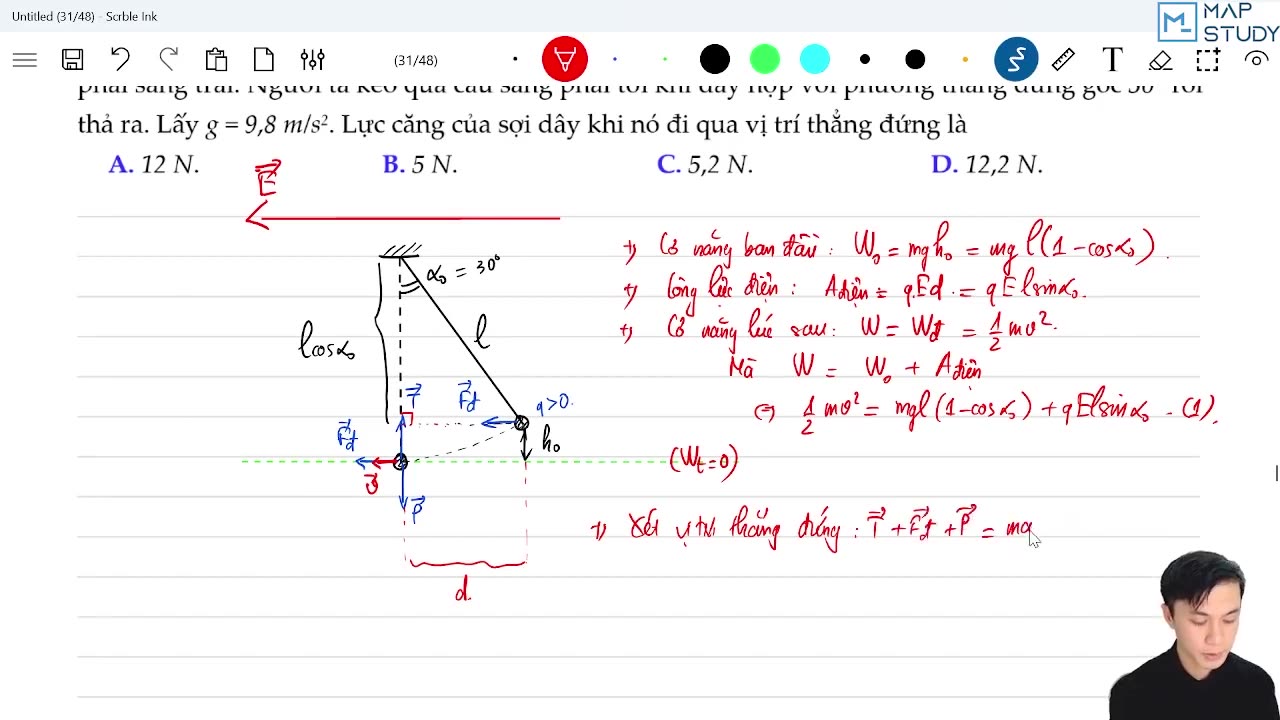 Untitled (31/48) - Scrble Ink
MAP
STUDY
(31/48)
T
phải sang trái. Người ta kéo quả cầu sang phải tới khi dây hợp với phương thẳng đứng góc 30° rồi
thả ra. Lấy g = 9,8 m/s². Lực căng của sợi dây khi nó đi qua vị trí thẳng đứng là
A. 12 N. B. 5 N. C. 5,2 N. D. 12,2 N.
E⃗
α₀ = 30°
l
lcosα₀
T⃗
F⃗đ
q>0.
F⃗đ
h₀
v⃗
P⃗
d.
+) Cơ năng ban đầu : W₀ = mgh₀ = mgl(1-cosα₀).
+) Công lực điện : Ađiện = qEd = qElsinα₀.
+) Cơ năng lúc sau : W = Wđ = 1/2 mv².
Mà W = W₀ + Ađiện
⇔ 1/2 mv² = mgl(1-cosα₀) + qElsinα₀ - (1).
(Wt=0)
+) Xét vị trí thẳng đứng : T⃗ + F⃗đ + P⃗ = ma